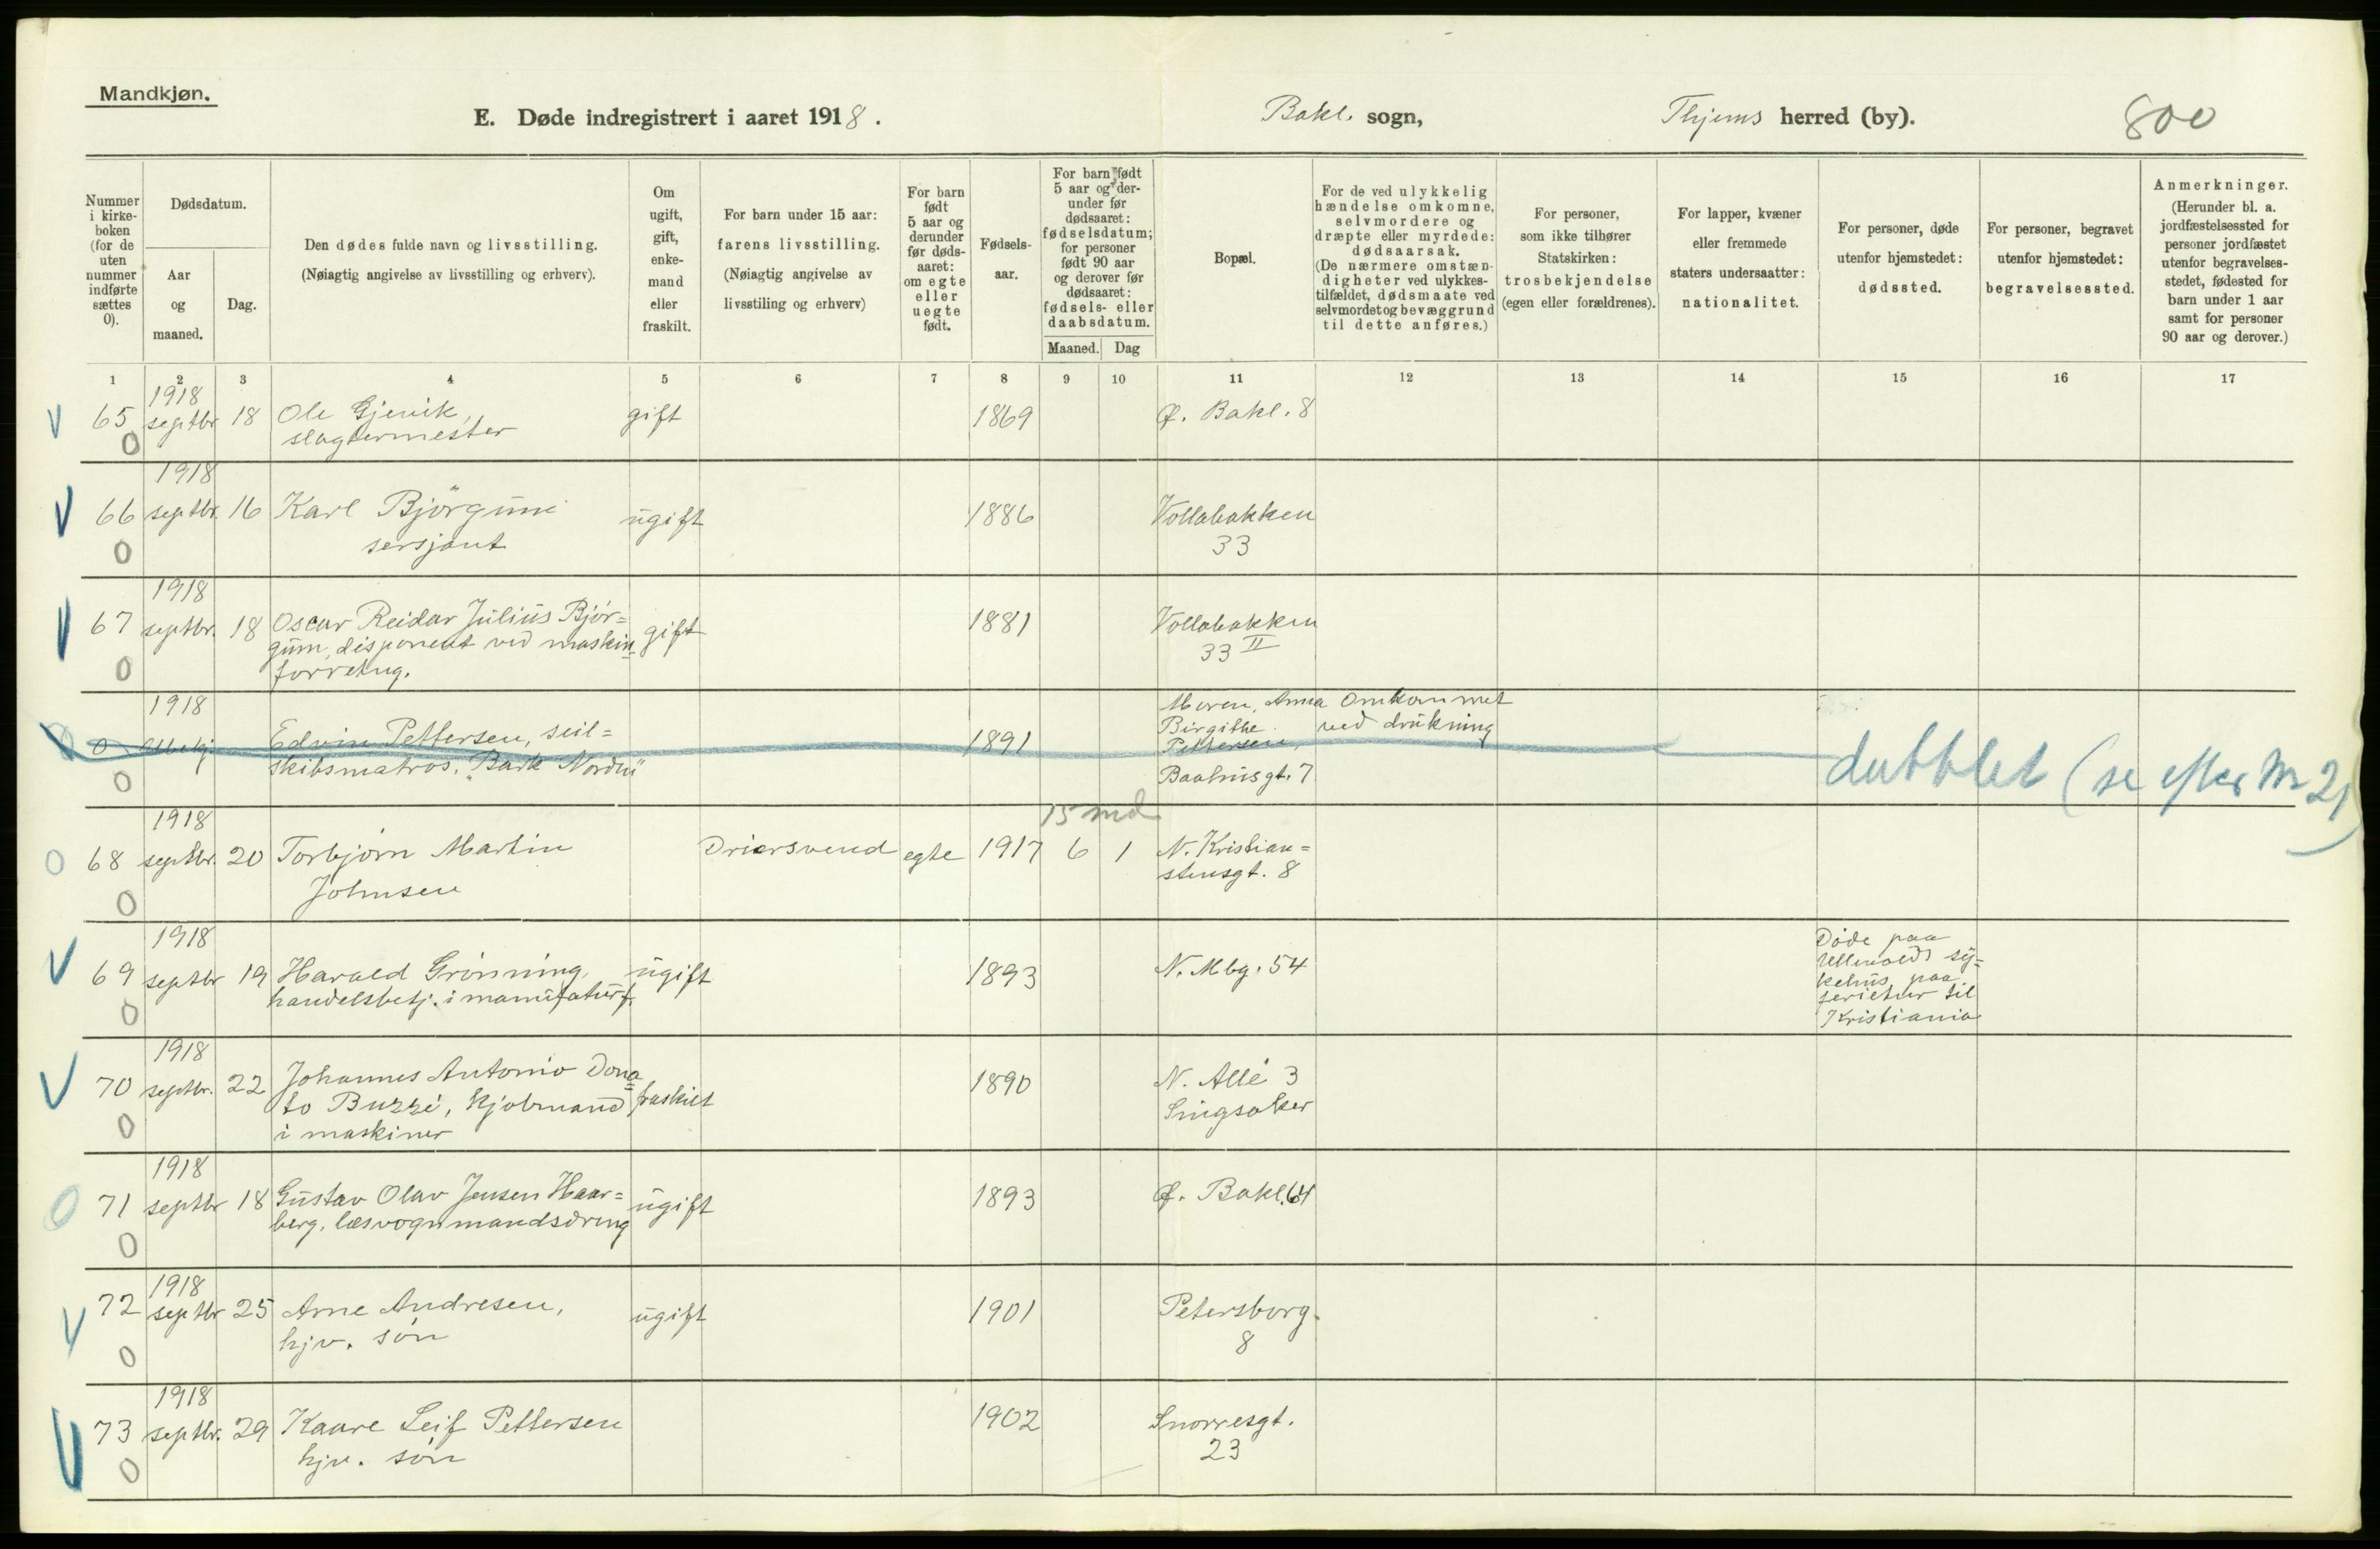 Mandkjøn.
E. Døde indregistrert i aaret 1918.
Bakl. sogn,
Thjems herred (by).
800
Nummer i kirke-boken (for de uten nummer indførte sættes 0).
Dødsdatum.
Aar og maaned.
Dag.
Den dødes fulde navn og livsstilling.
(Nøiagtig angivelse av livsstilling og erhverv).
Om ugift, gift, enke-mand eller fraskilt.
For barn under 15 aar: farens livsstilling.
(Nøiagtig angivelse av livsstiling og erhverv)
For barn født 5 aar og derunder før døds-aaret: om egte eller uegte født.
Fødsels-aar.
For barn født 5 aar og der-under før dødsaaret: fødselsdatum; for personer født 90 aar og derover før dødsaaret: fødsels- eller daabsdatum.
Maaned. Dag
Bopæl.
For de ved ulykkelig hændelse omkomne, selvmordere og dræpte eller myrdede: dødsaarsak.
(De nærmere omstæn-digheter ved ulykkes-tilfældet, dødsmaate ved selvmordet og bevæggrund til dette anføres.)
For personer, som ikke tilhører Statskirken: trosbekjendelse (egen eller forældrenes).
For lapper, kvæner eller fremmede staters undersaatter: nationalitet.
For personer, døde utenfor hjemstedet: dødssted.
For personer, begravet utenfor hjemstedet: begravelsessted.
Anmerkninger.
(Herunder bl. a. jordfæstelsessted for personer jordfæstet utenfor begravelses-stedet, fødested for barn under 1 aar samt for personer 90 aar og derover.)
1 2 3 4 5 6 7 8 9 10 11 12 13 14 15 16 17
1918
65 septbr 18 Ole Gjenik, gift 1869 Ø. Bakl. 8
0 slagtermester
1918
66 septbr. 16 Karl Bjørgum ugift 1886 Vollabakken
0 sersjant 33
1918
67 septbr. 18 Oscar Reidar Julius Bjør= gift 1881 Vollabakken
gum, disponent ved maskin 33 II
0 forretng.
1918 Moren, Anna Omkommet
0 Edvin Pettersen, seil= 1891 Birgithe ved drukning
skibsmatros. "Bark Norden" Pettersen,
0 Baahusgt. 7
dubblet (se efter Nr 21)
1918 15 md
68 septbr. 20 Torbjørn Martin Driersvend egte 1917 6 1 N. Kristian=
0 Johnsen stensgt. 8
1918
69 septbr 19 Harald Grønning, ugift 1893 N. Mbg. 54 Døde paa
handelsbetj. i manufaturf. Ullevolds sy=
0 kehus paa
ferietur til
Kristiania
1918
70 septbr. 22 Johannes Antonio Dona= fraskilt 1890 N. Allé 3
to Buzzi, kjøbmand Singsaker
0 i maskiner
1918
71 septbr 18 Gustav Olav Jensen Haar= ugift 1893 Ø. Bakl. 64
0 berg, læsvognmandsdreng
1918
72 septbr 25 Arne Andresen, ugift 1901 Petersborg.
0 hjv. søn 8
1918
73 septbr. 29 Kaare Leif Pettersen 1902 Snorresgt.
0 hjv. søn 23